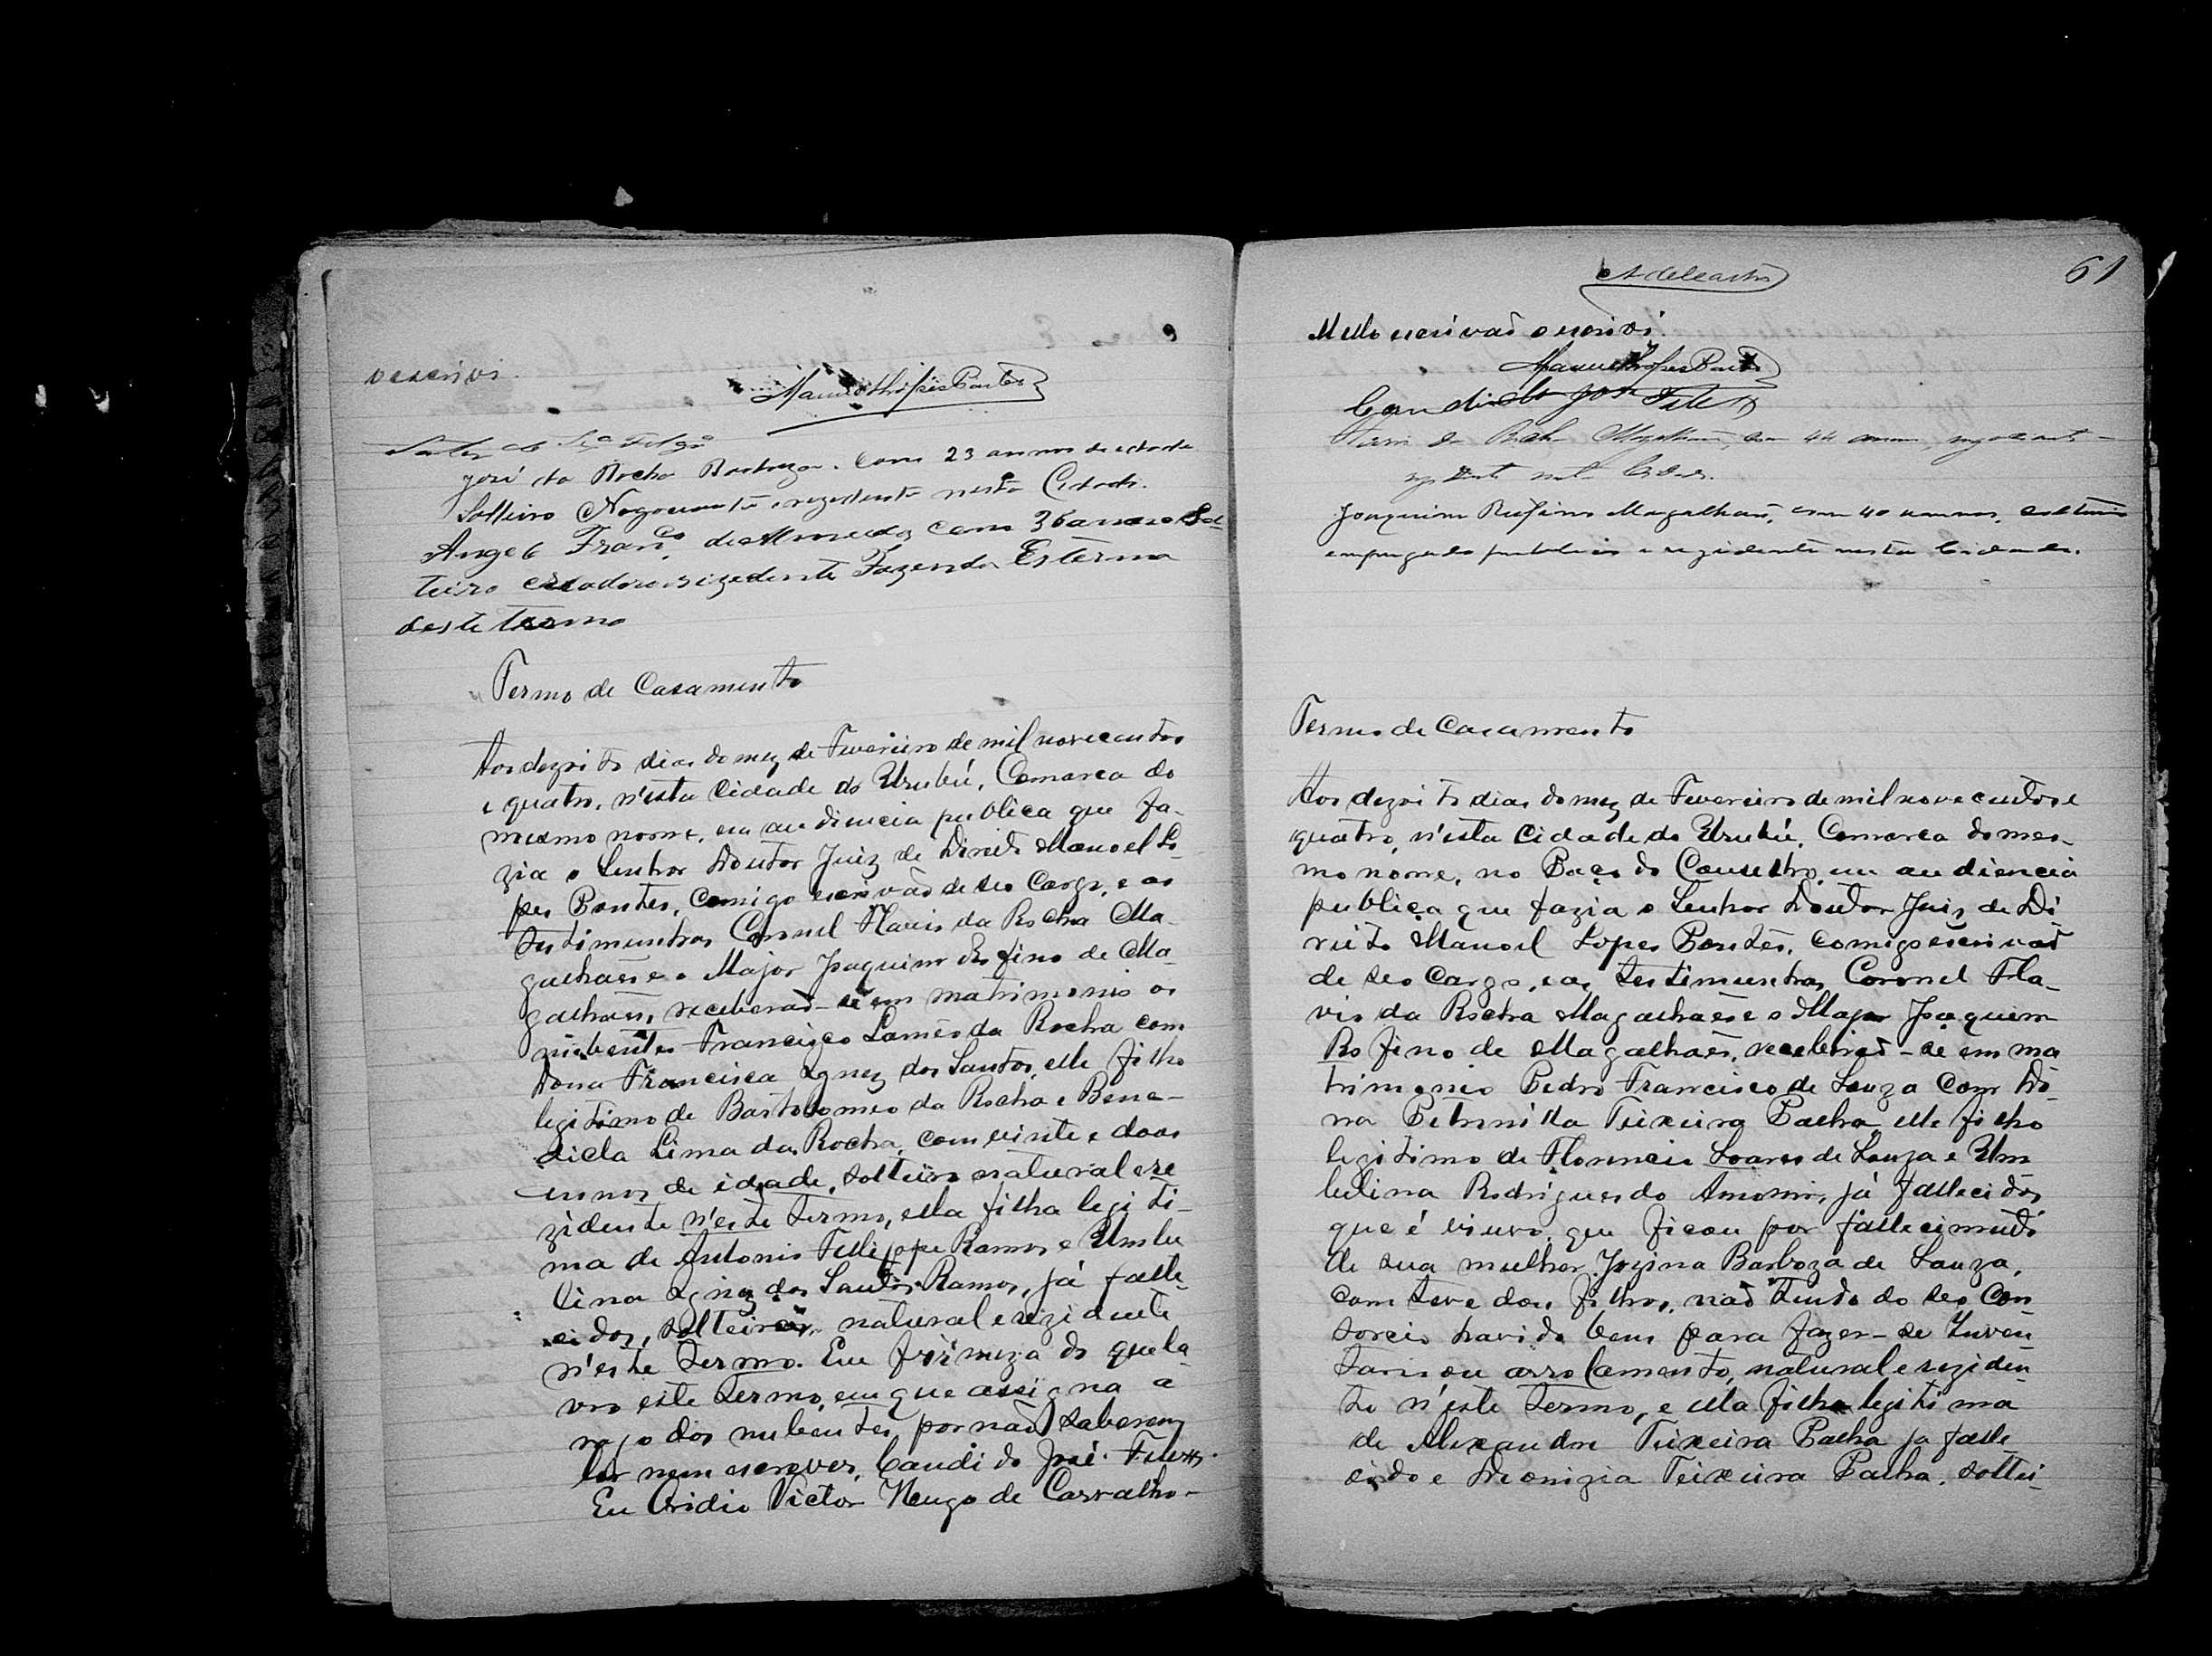 o escrivi.
Manoel Lopes Pontes
José da Rocha Barboza. com 23 annos de edade
Solteiro Negociante, rezidente nesta Cidade.
Angelo Franco. de Almeida com 36 annos Sol-
teiro creador rezidente Fazenda Esterma
deste termo
Termo de Casamento
Aos dezoito dias do mez de Fevereiro de mil novecentos
e quatro, n'esta Cidade do Urubú, Comarca do
mesmo nome, em audiencia publica que fa-
zia o Senhor Doutor Juiz de Direito Manoel Lo-
pes Pontes, comigo escrivão de seo Cargo, e as
testimunhas Coronel Flavio da Rocha Ma-
galhães e o Major Joaquim Rofino de Ma-
galhães, receberaõ-se em matrimonio os
nubentes Francisco Lamêo da Rocha com
Dona Francisca Ignez dos Santos, elle filho
legitimo de Bartolomeo da Rocha e Bene-
dicta Lima da Rocha, com vinte e dous
annos de idade, solteiro natural e re
zidente n'este termo, ella filha legiti-
ma de Antonio Fellippe Ramos e Umbe
lina Ignez dos Santos Ramos, já falle-
cidos, solteira, natural e rezidente
n'este termo. Em firmeza do que la-
vro este termo, em que assigna a
rogo dos nubentes, por naõ saberem
ler nem escrever, Candido José Telles.
Eu Ovidio Victor Heugo de Carvalho-
61
Mello escrivaõ o escrivi.
Manoel Lopes Pontes
Candido José Telles
Flavio da Rocha Magalhães, com 44 annos, negociante
rezidente nesta Cidade.
Joaquim Rufino Magalhães, com 40 annos, solteiro
empregado publico e rezidente nesta Cidade.
Termo de Casamento
Aos dezoito dias do mez de Fevereiro de mil nove centos e
quatro, n'esta Cidade do Urubú, Comarca do mes-
mo nome, no Paço do Conselho, em audiencia
publica que fazia o Senhor Doutor Juiz de Di
reito Manoel Lopes Pontes, comigo escrivaõ
de seo Cargo, e as testimunhas Coronel Fla-
vio da Rocha Magalhães e o Major Joaquim
Rofino de Magalhães, receberaõ-se em ma
trimonio Pedro Francisco de Souza com Do-
na Petronilla Teixeira Pacha, elle filho
legitimo de Florencio Soares de Souza e Um
belina Rodrigues do Amorim, já fallecidos
que é viuvo, que ficou por fallecimento
de sua mulher Jozina Barboza de Souza,
com teve dous filhos, naõ tendo do seo Con
sorcio havido bens para fazer-se Inven
tario ou arrolamento, natural e reziden-
te n'este termo, e ella filha legitima
de Alexandre Teixeira Pacha ja falle
cido e Deonizia Teixeira Pacha, soltei-